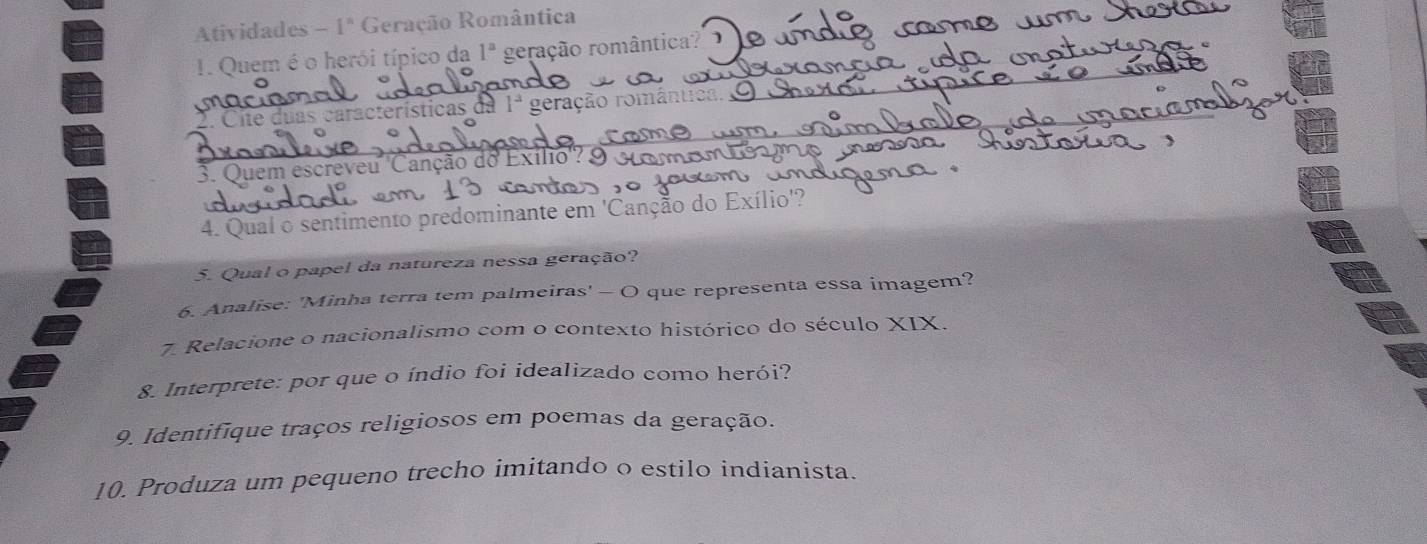 Atividades – 1ª Geração Romântica
1. Quem é o herói típico da 1ª geração romântica? De indio como um heroi
nacional idealizando e a exuberancia da natureza.
2. Cite duas características da 1ª geração romântica. O heroi tipico é o indio
Brasileiro, idealizando como um simbolo do nacionalizar.
3. Quem escreveu 'Canção do Exílio'? O romantismo nossa historia,
em 13 cantos, o jovem indigena.
4. Qual o sentimento predominante em 'Canção do Exílio'?
5. Qual o papel da natureza nessa geração?
6. Analise: 'Minha terra tem palmeiras' – O que representa essa imagem?
7. Relacione o nacionalismo com o contexto histórico do século XIX.
8. Interprete: por que o índio foi idealizado como herói?
9. Identifique traços religiosos em poemas da geração.
10. Produza um pequeno trecho imitando o estilo indianista.